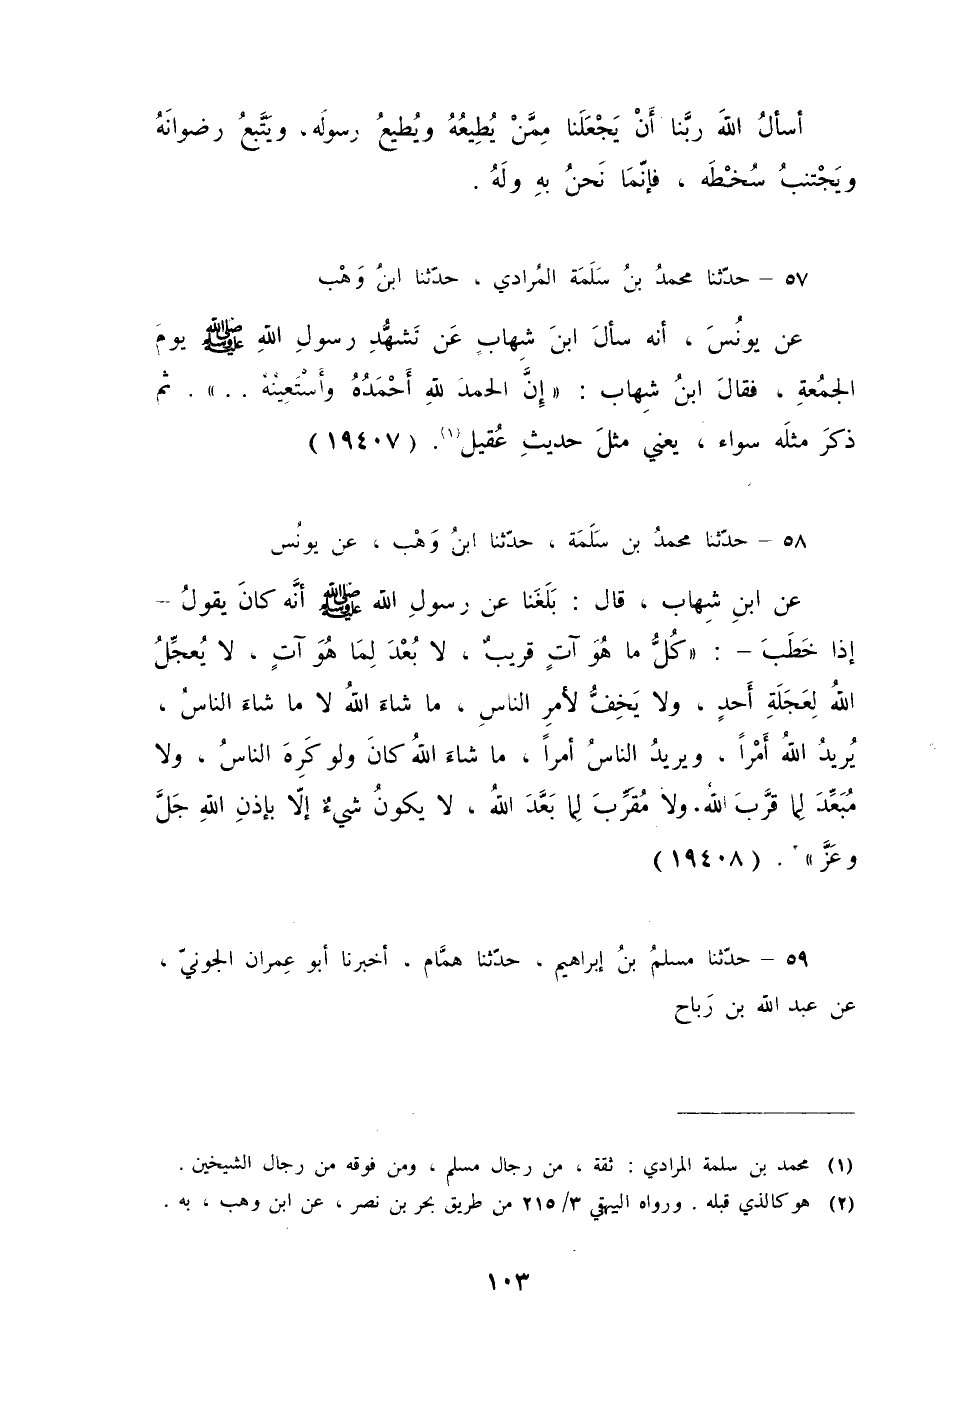 أسألُ اللهَ ربَّنا أَنْ يَجْعَلَنا مِمَّنْ يُطِيعُهُ ويُطيعُ رسولَه، ويَتَّبعُ رضوانَهُ
ويَجْتنبُ سُخْطَه ، فإنّمَا نَحنُ بهِ ولَهُ .
٥٧ – حدّثنا محمدُ بنُ سَلَمَة المُرادي ، حدّثنا ابنُ وَهْب
عن يونُسَ ، أنه سألَ ابنَ شهاب عَن تَشهُّدِ رسولِ اللهِ ﷺ يومَ
الجمُعةِ ، فقالَ ابنُ شِهاب : « إنَّ الحمدَ للهِ أَحْمَدُهُ وأَسْتَعِينُهُ . . » . ثم
ذكرَ مثلَه سواء ، يعني مثلَ حديثِ عُقيل(١). ( ١٩٤٠٧ )
٥٨ – حدّثنا محمدُ بن سَلَمَة ، حدّثنا ابنُ وَهْب ، عن يونُس
عن ابنِ شِهاب ، قال : بَلَغَنا عن رسولِ الله ﷺ أنَّه كانَ يقولُ –
إذا خَطَبَ – : «كُلُّ ما هُوَ آتٍ قريبٌ ، لا بُعْدَ لِمَا هُوَ آتٍ ، لا يُعجِّلُ
اللهُ لِعَجَلَةِ أَحدٍ ، ولا يَخِفُّ لأمرِ الناسِ ، ما شاءَ اللهُ لا ما شاءَ الناسُ ،
يُريدُ اللهُ أَمْراً ، ويريدُ الناسُ أمراً ، ما شاءَ اللهُ كانَ ولو كَرِهَ الناسُ ، ولا
مُبَعِّدَ لِما قرَّبَ اللهُ. ولا مُقَرِّبَ لِما بَعَّدَ اللهُ ، لا يكونُ شيءٌ إلّا بإذنِ اللهِ جَلَّ
وعَزَّ » . ( ١٩٤٠٨ )
٥٩ – حدّثنا مسلمُ بنُ إبراهيم ، حدّثنا همَّام . أخبرنا أبو عِمران الجونيّ ،
عن عبد الله بن رَباح
(١) محمد بن سلمة المرادي : ثقة ، من رجال مسلم ، ومن فوقه من رجال الشيخين .
(٢) هو كالذي قبله . ورواه البيهقي ٣/ ٢١٥ من طريق بحر بن نصر ، عن ابن وهب ، به .
١٠٣